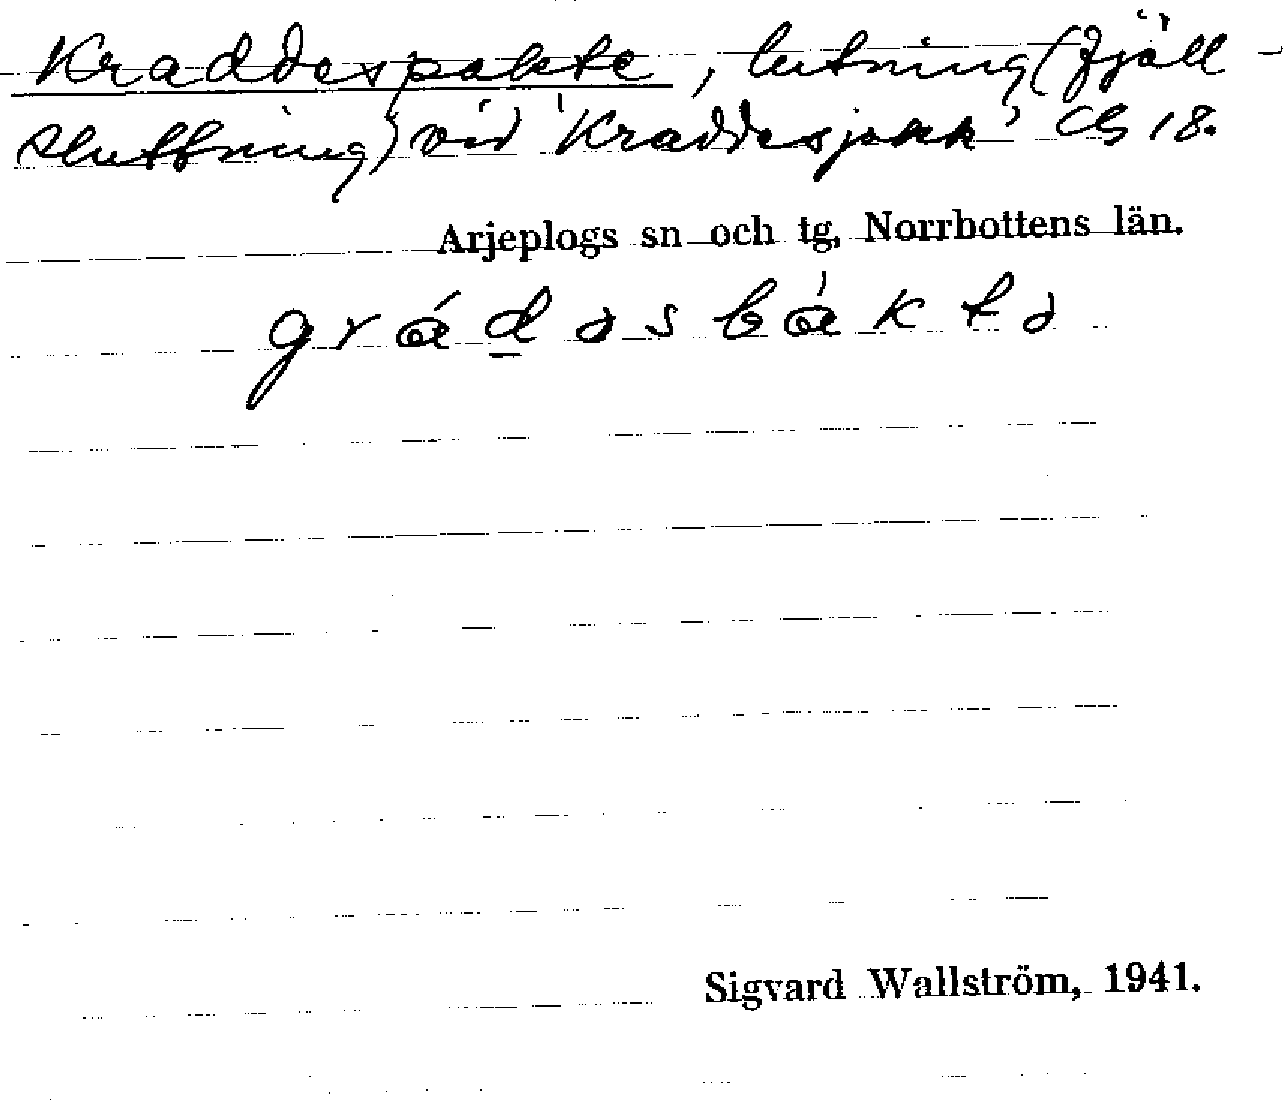 Kraddespakte, lutning (fjäll-
sluttning) vid 'Kraddesjåkk' CG 18.
Arjeplogs sn och tg, Norrbottens län.
grád̲əsbáktə
Sigvard Wallström, 1941.